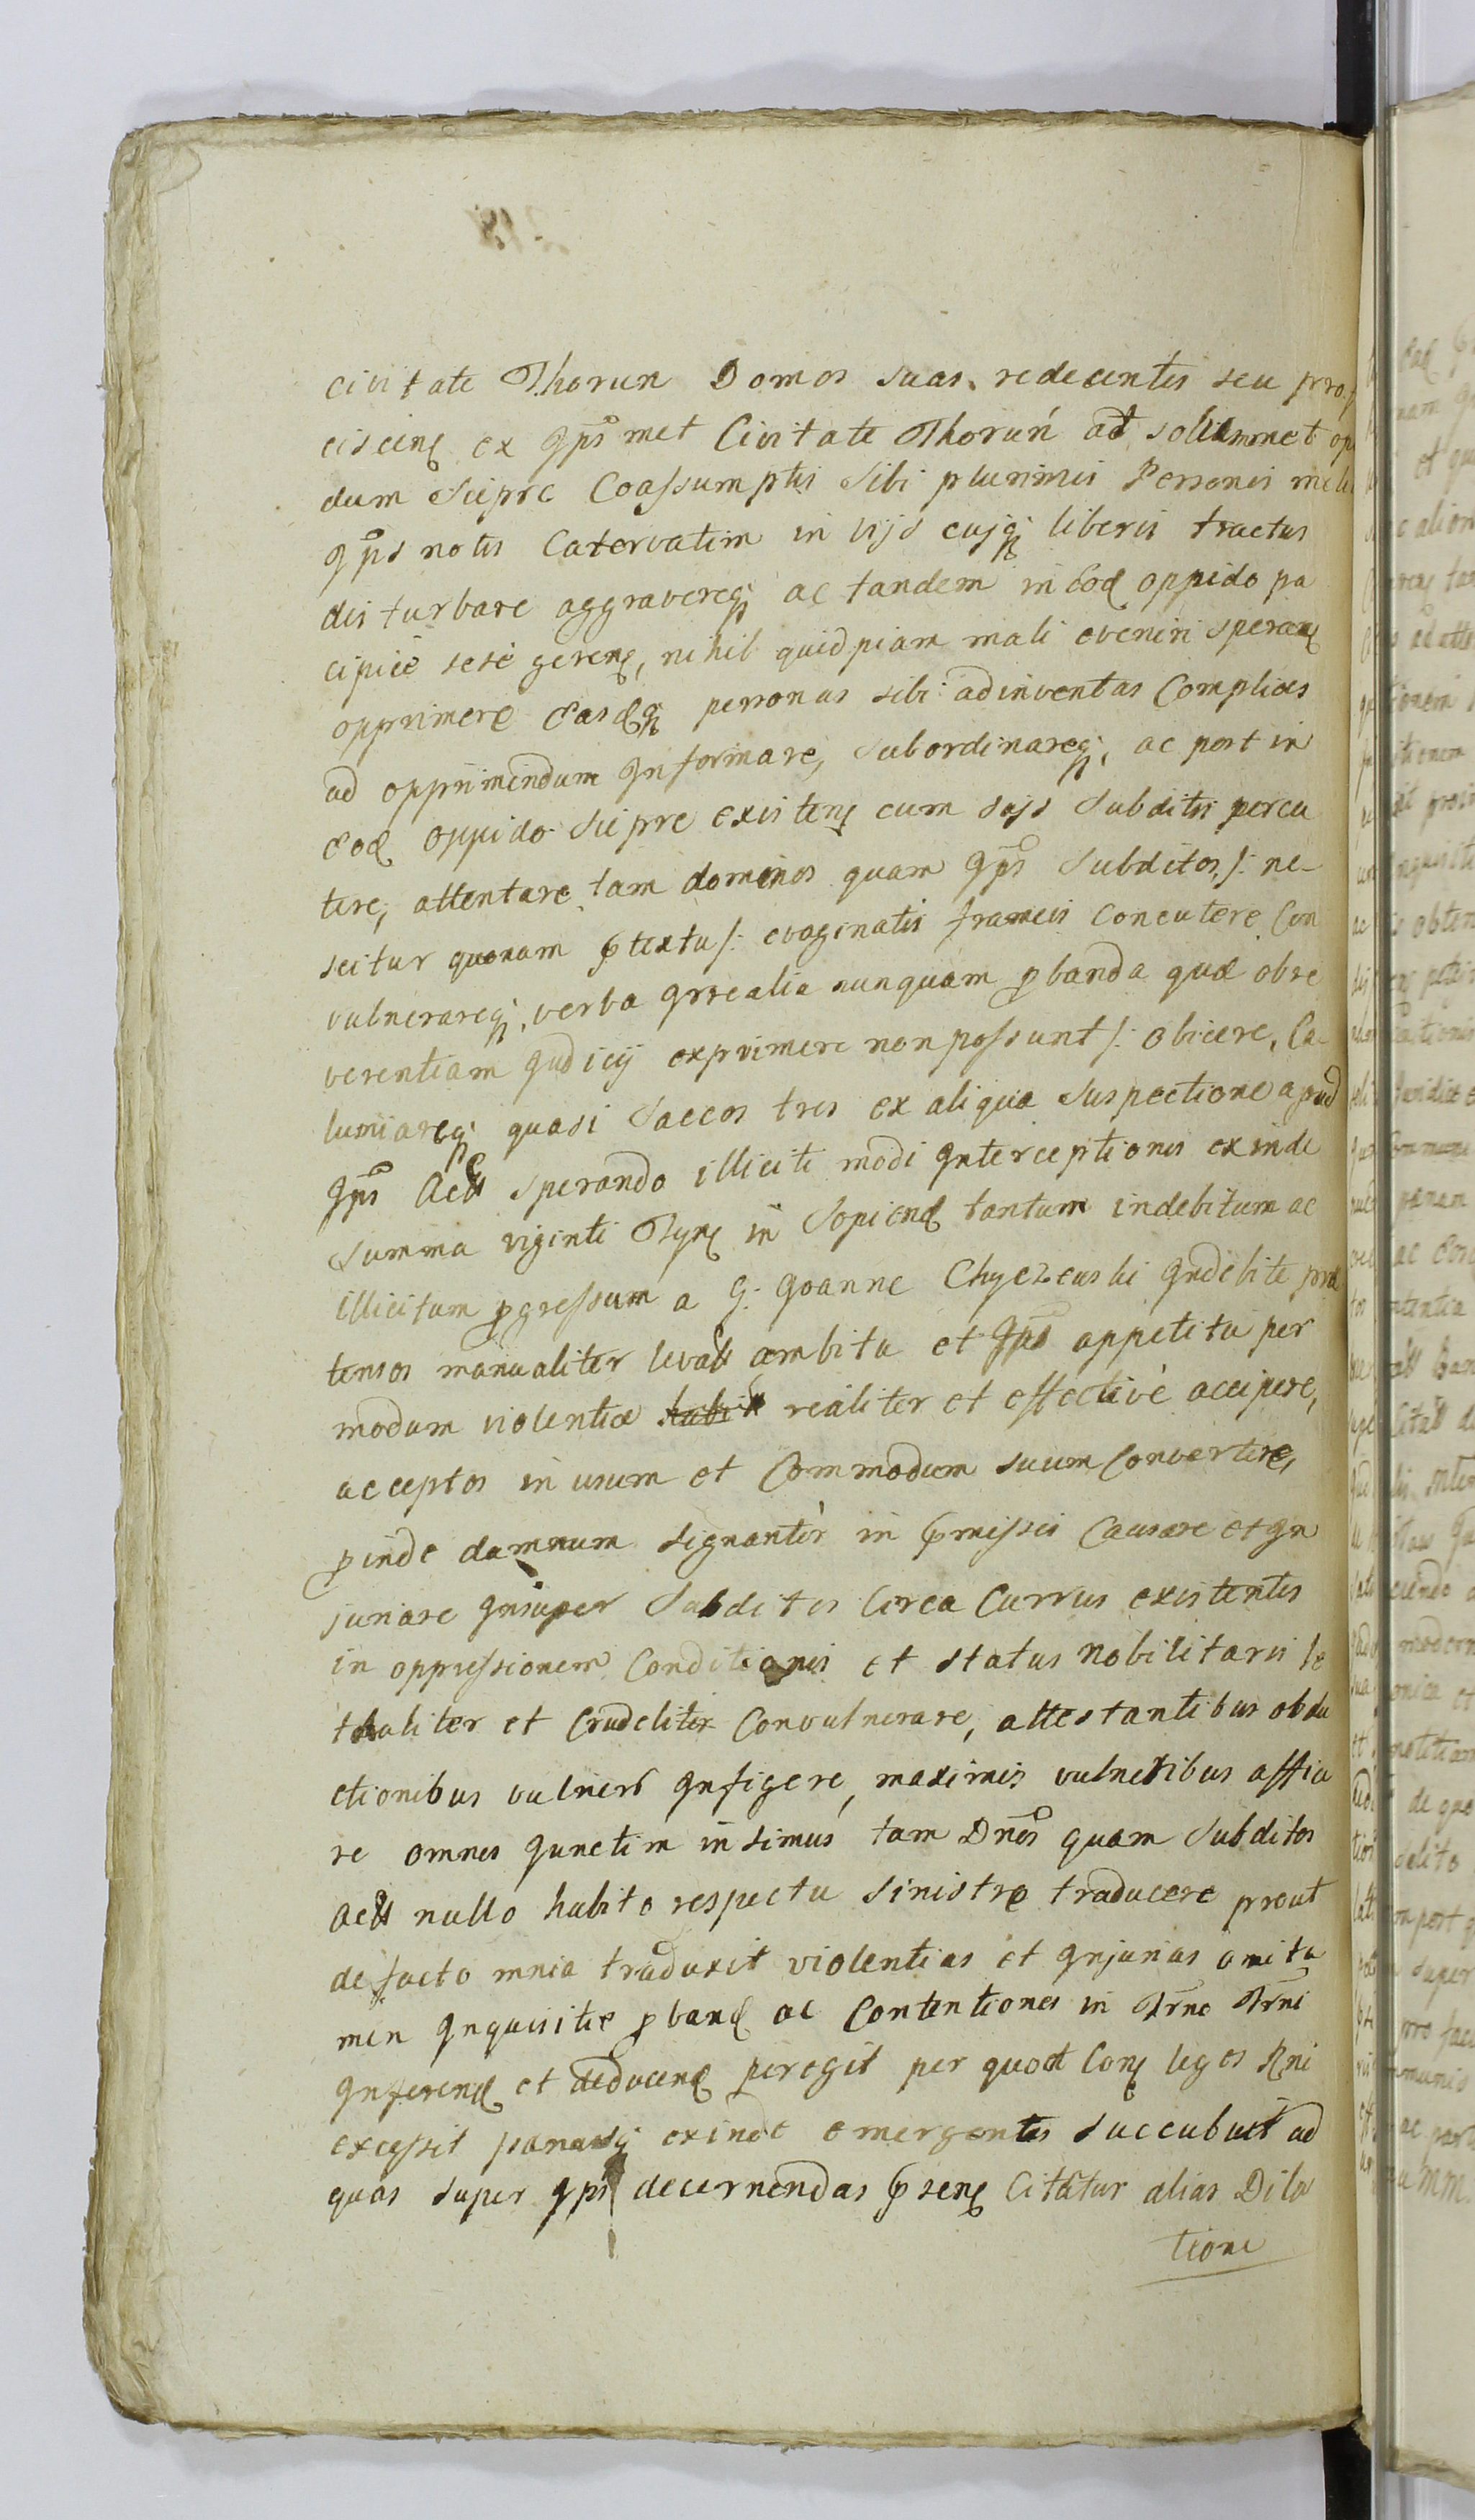 civitate Thorun Domos suas redeuntes seu pro
ciscenes ex Ipsmet Civitate Thoruń ad solummet op
dum Sieprc Coassumptis Sibi plurimis Personis
Ipsis notis Catervatim in vijs eujsq liberis tractus
disturbare aggravereq ac tandem in Eod oppido pa
cipice sese gerens, nihil quidpiam mali eveniri sperans
opprimere Easdq personas sibi adinventas Complices
ad opprimendum Informare, Subordinareq, ac post in
Eod oppido Sieprc existens cum Sajs Subditis percu
tere, attentare tam dominos quam Ipsos Subditos /: ne-
scitur quonam ptextu /: evaginatis frameis Concutere Con
vulnerareq, verba Irrealia nunquam pbanda quæ obre
verentiam Judicij exprimere non possunt /: obicere, Ca
lumiareq quasi Saccos tres ex aliqua Suspectione apud
Ipsos Actt sperando illiciti modi Interceptionis exinde
Summa viginti Tynf in Sopiend tantum indebitum ac
illicitum pgressum a G: Joanne Chyczewski Indebite præ
tensos manualiter levatt ambitu et Ipso appetitu per
modum violentiæ realiter et effectivè accipere,
acceptos in usum et Commodum suum Convertere,
pinde damnum signantèr in pmissis Causare et In
juriare Insuper Subditos Circa Currus existentes
in oppressionem Conditionis et status Nobilitaris le
thaliter et Crudeliter Convulnerare, attestantibus obdu
ctionibus vulner Infigere, maximis vulneribus affice
re omnes Junctim insimus tam Dnos quam Subditos
Actt nullo habito respectu Sinistre traducere prout
de facto mnia traduxit violentias et Injurias omita
men Inquisitie pband ac Contentiones in Trno Trni
Inferend et deducend peregit per quod Cons leges Rni
excessit pænasq exinde emergentes succubuit ad
quas super Ipso decernendas psens Citatur alias Dila
tione